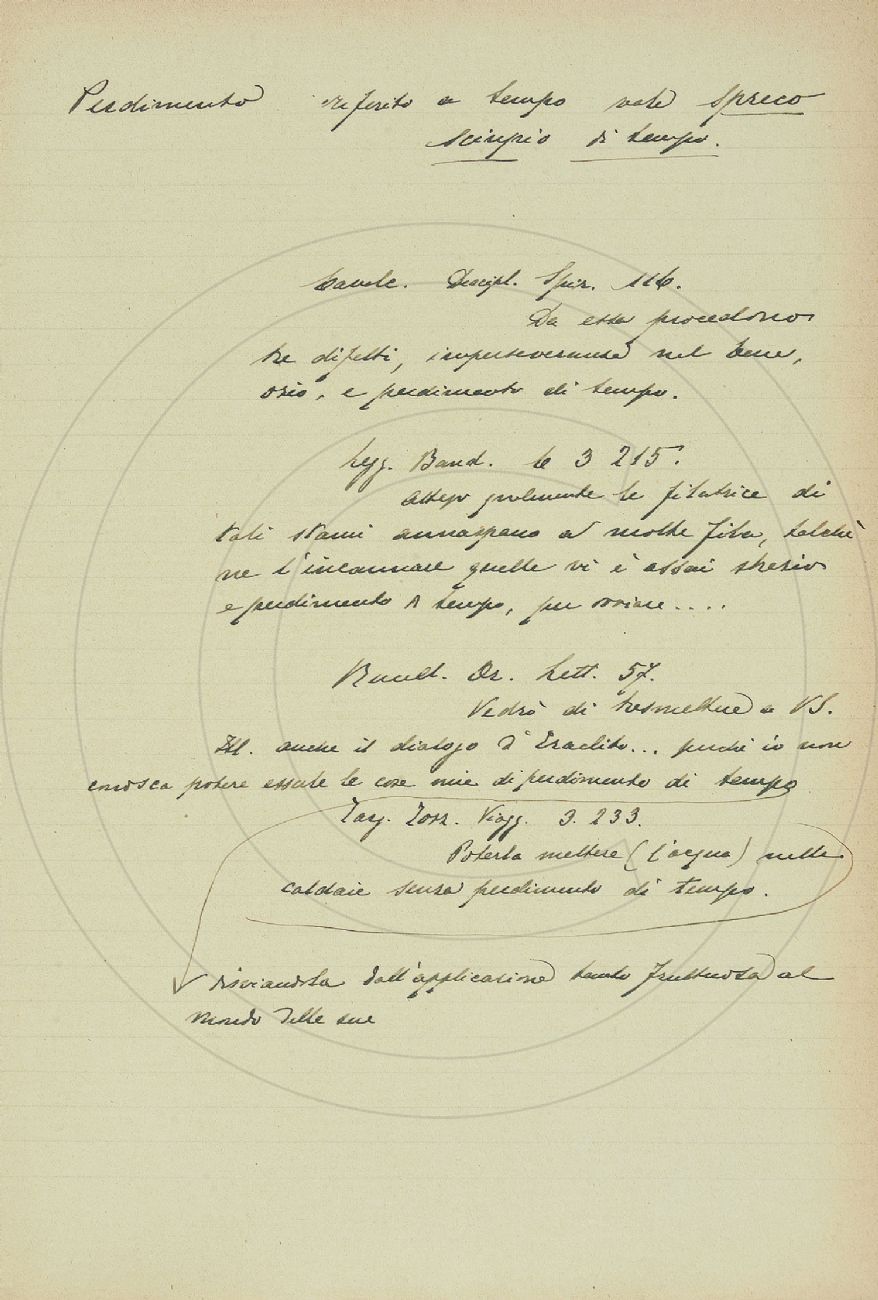 Perdimento riferito a tempo vale Spreco
Scinpio di tempo.
Cavalc. Discipl. Spir. 116.
Da essa procedono
tre difetti, imperseveranza nel bene,
ozio, e perdimento di tempo.
Legg. Band. le 3 215.
Atteso le filatrice di
tali stami annaspano a molte fila, talchè
ne l'incannare quelle vi è assai strazio
e perdimento di tempo, per ovviare....
Or. Lett. 57.
Vedrò di trasmettere a VS.
Ill. anche il dialogo d'Eraclito... perchè io non
conosca potere essere le cose mie di perdimento di tempo
Targ. Tozz. Viagg. 3. 233.
Poterla mettere (l'acqua) nelle
caldaie senza perdimento di tempo.
disviandola dall'applicazione tanto fruttuosa al
mondo delle sue